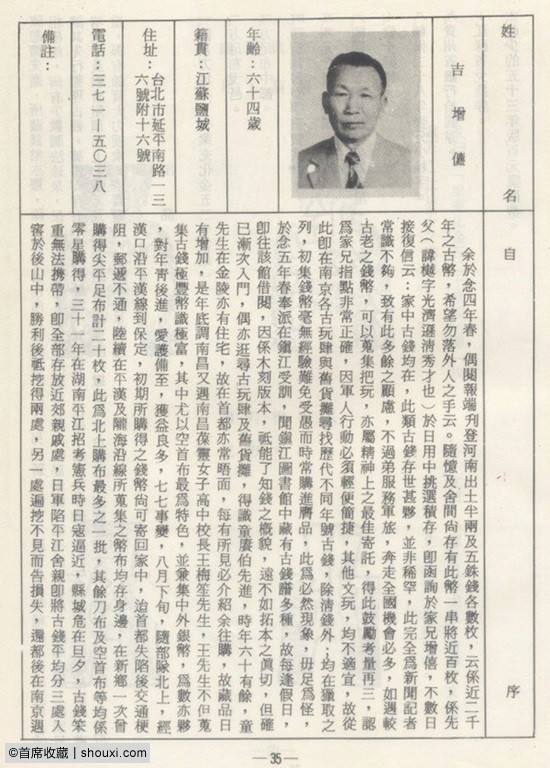 姓名
吉增僊
年齡：六十四歲
籍貫：江蘇鹽城
住址：台北市延平南路一三
六號附十六號
電話：三七一—五〇三八
備註：
自序
余於念四年春，偶閱報端刋登河南出土半兩及五銖錢各數枚，云係近二千
年之古幣，希望勿落外人之手云。隨憶及舍間尙存有此幣一串將近百枚，係先
父（諱樾字光濟遜淸秀才也）於日用中挑選積存，卽函詢於家兄增僖，不數日
接復信云：家中古錢均在，此類古錢存世甚夥，並非稀罕，此完全爲新聞記者
常識不夠，致有此多餘之顧慮，不過弟服務軍旅，奔走全國機會必多，如遇較
古老之錢幣，可以蒐集把玩，亦屬精神上之最佳寄託，得此鼓勵考量再三，認
爲家兄指點非常正確，因軍人行動必須輕便簡捷，其他文玩，均不適宜，故從
此卽在南京各古玩肆與舊貨攤尋找歷代不同年號古錢，除淸錢外；均在獵取之
列，初集錢幣毫無經驗難免受愚而時常購進贋品，此爲必然現象，毋足爲怪，
於念五年春奉派在鎭江受訓，聞鎭江圖書館中藏有古錢譜多種，故每逢假日，
卽往該館借閱，因係木刻版本，祗能了知錢之概貌，遠不如拓本之眞切，但確
已漸次入門，偶亦逛尋古玩肆及舊貨攤，得識童賡伯先進，時年六十有餘，童
先生在金陵亦有住宅，故在首都亦常晤面，每有所見必介紹余往購，故藏品日
有增加，是年底調南昌又遇南昌葆靈女子高中校長王梅笙先生，王先生不但蒐
集古錢極豐幣識極富，其中尤以空首布最爲特色，並兼集中外銀幣，爲數亦夥
，對年靑後進，愛護備至，獲益良多，七七事變，八月下旬，隨部隊北上，經
漢口沿平漢線到保定，初期所購得之錢幣尙可寄回家中，迨首都失陷後交通梗
阻，郵遞不通，陸續在平漢及隴海沿線所蒐集之幣布均存身邊，在新鄉一次曾
購得尖平足布計二十枚，此爲北上購布最多之一批，其餘刀布及空首布等均係
零星購得，三十一年在湖南平江招考憲兵時日寇逼近，縣城危在旦夕，古錢笨
重無法携帶，卽全部存放近郊親戚處，日軍陷平江舍親卽將古錢平均分三處入
窖於後山中，勝利後祗挖得兩處，另一處遍挖不見而告損失，還都後在南京週
—35—
©首席收藏 | shouxi.com